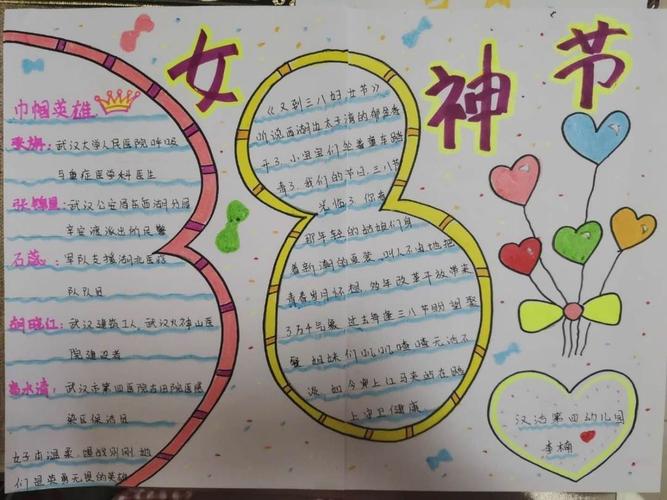 女神节
巾帼英雄
李旃：武汉大学人民医院呼吸
与重症医学科医生
武汉公安局东西湖分局
辛安渡派出所民警
石蕊：军队支援湖北医疗
队队员
胡晓红：武汉建筑工人，武汉火神山医
院建设者
武汉市第四医院古田院区感
染区保洁员
女子亦温柔、但战则刚 她
们是英勇无畏的英雄
《又到三八妇女节》
听说西湖边太子湾的郁金香
开了 小宝宝们坐着童车踏
青了 我们的节日 三八节
光临了 你看
那年轻的姑娘们身
着新潮的夏装 叫人不由地把
青春岁月怀想 每年改革开放带来
了万千气象 过去每逢三八节盼望聚
餐 姐妹们叽叽喳喳
如今爱上红马夹站在路
上 健康
汉冶第四幼儿园
李楠